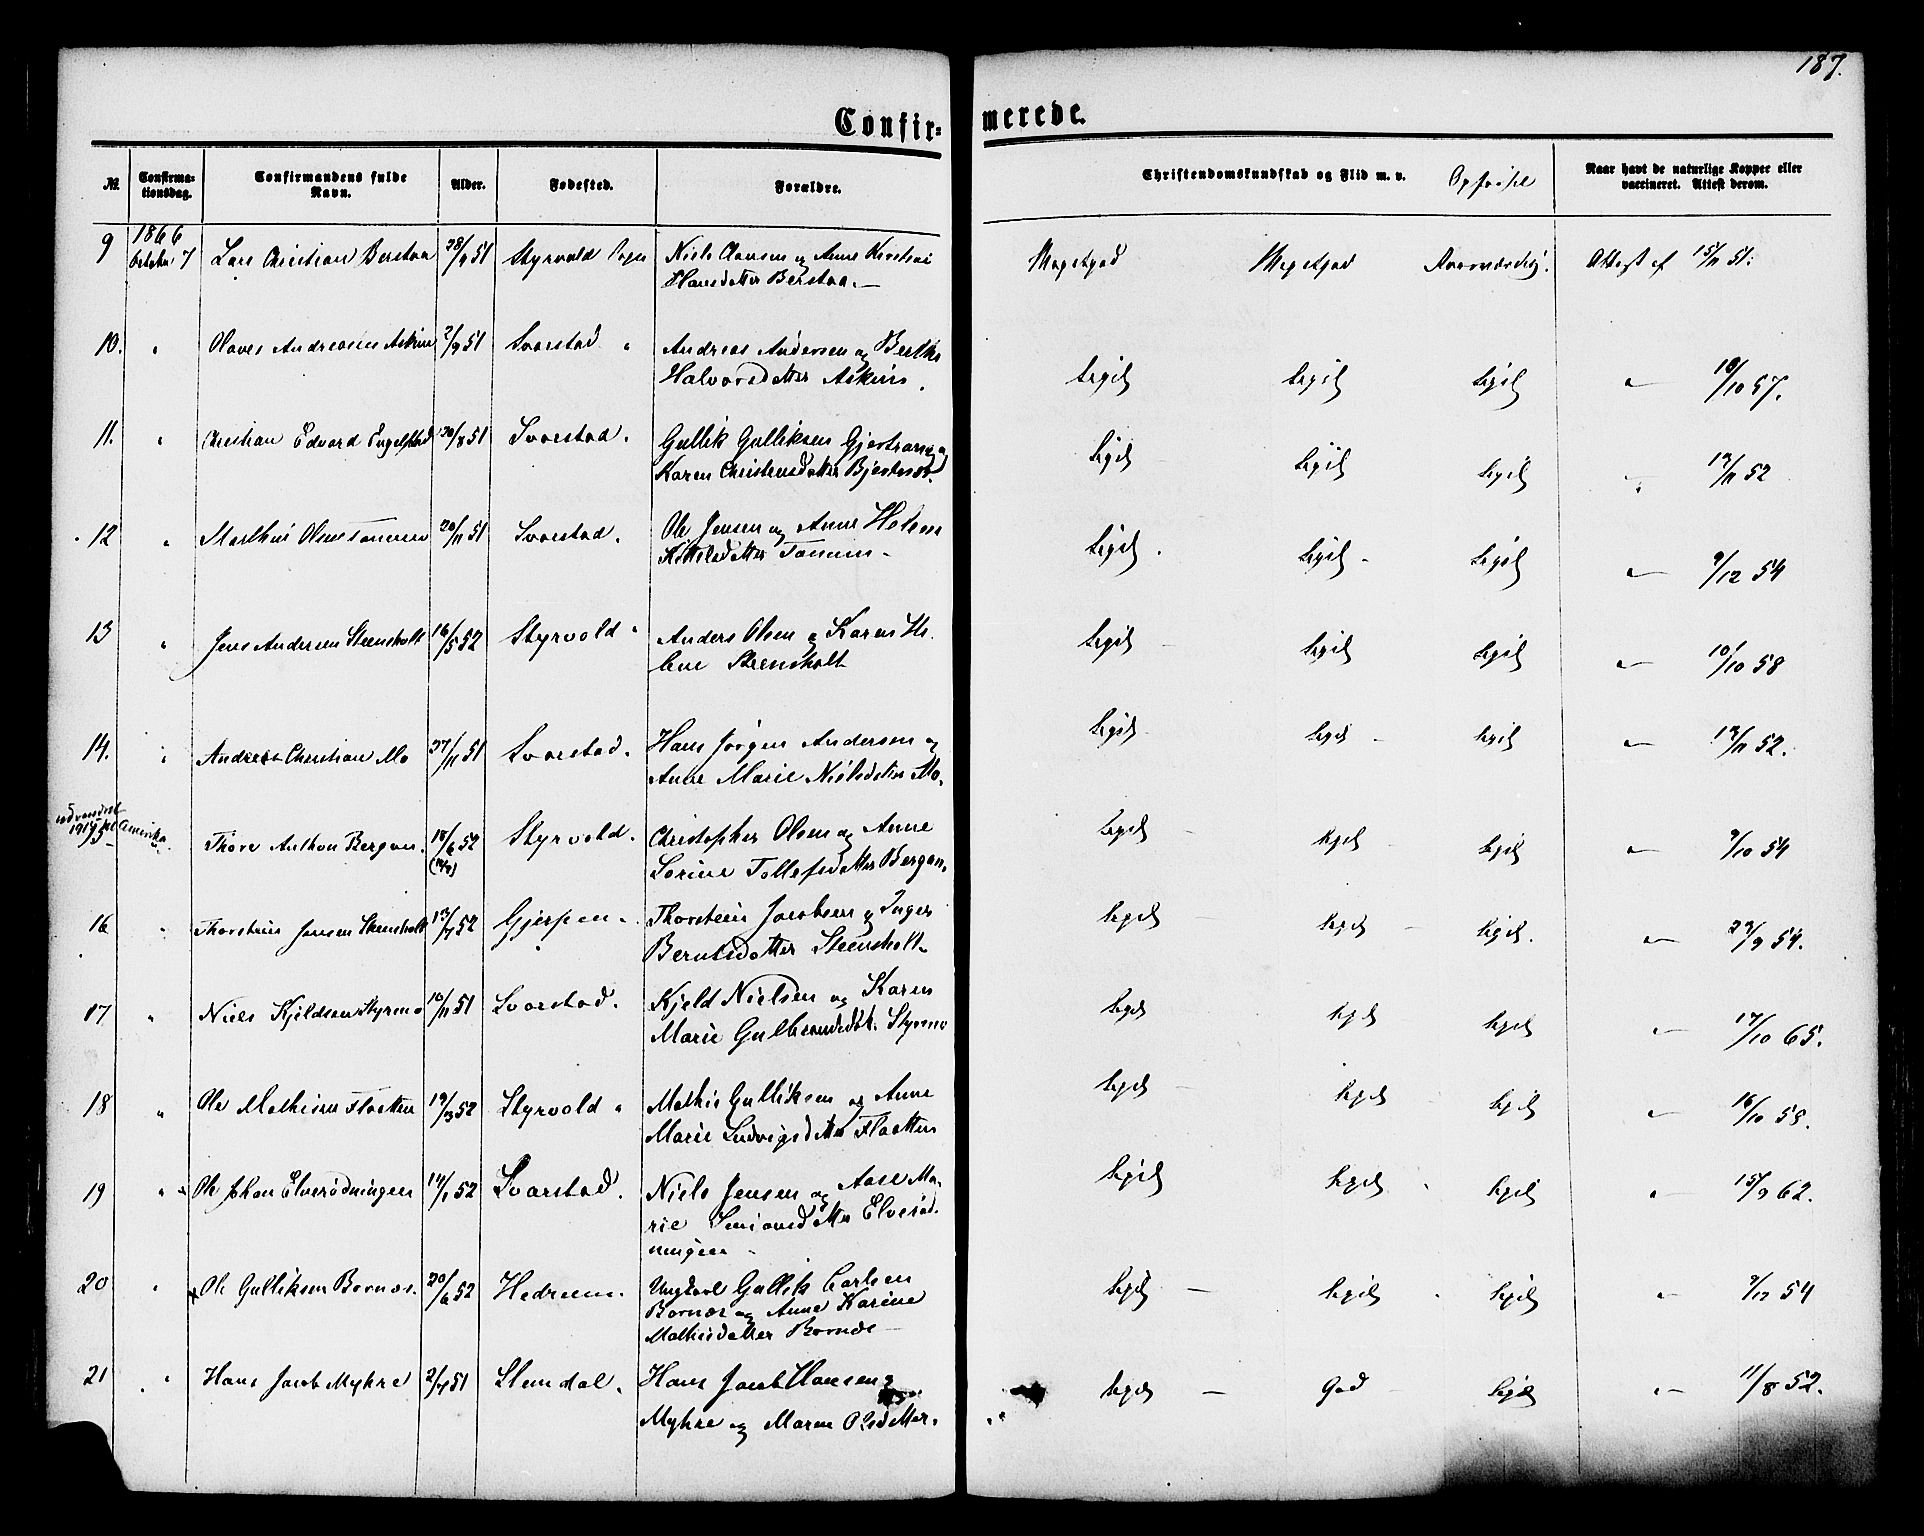 187.
Confir= merede.
No. Confirma= tionsdag. Confirmandens fulde Navn. Alder. Fødested. Forældre. Christendomskundskab og Flid m. v. Opførsel Naar havt de naturlige Kopper eller vaccineret. Attest derom.
9 1866 October 7 Lars Christian Berstaa 51 Styrvold Sogn Niels Clausen og Anne
Hansdatter Berstaa. Megetgod Megetgod Attest af 15/11 51.
10. " Andreassen Askim 2/9 51 Svarstad " Andreas Andersen og Berthe
Halvorsdatter Askim. ligel. ligel. ligel. " 57.
11. " Christian Edvard Engelstad 30/8 51 Svarstad. Gulliksen Gjertran og
Karen Christensdatter ligel. ligel. ligel. 52
12 " Olsen 20/11 51 Svarstad. Ole Jensen og Anne Helene
ligel. ligel. ligel. " 9/12 54
13 " Jens Andersen Steensholt 16/5 52 Styrvold " Anders Olsen og Karen He-
lene Steensholt ligel. ligel. ligel. " 10/10 58
14. " Andreas Christian Mo 27/11 51 Svarstad. Hans Jørgen Andersen og
Anne Marie Nielsdatter Mo. ligel. ligel. ligel. " 52.
udvandret
1915 til Amerika
Thore Anthon Bergan. 18/6 52 Styrvold. Christopher Olsen og Anne
Sorine Tollefsdatter Bergan. ligel. ligel. ligel. " 9/10 54
16 " Jansen Steensholt 52 Gjerpen. Thorstein Jacobsen og Inger
Berntsdatter Steensholt. ligel. ligel. ligel. " 9 54.
17 " Niels Kjeldsen Styrmo 10/11 51 Svarstad. Kjeld Nielsen og Karen
Marie Gulbrandsdt. Styrmo ligel. ligel. ligel. " 17/10 65.
18 " Ole Mathisen Flaatten 19/3 52 Styrvold " Mathis Gulliksen og Anne
Marie Ludvigsdatter Flaatten ligel. ligel. ligel. " 16/10 58.
19 " Ole Johan Elverødningen 14/1 52 Svarstad. Niels Jensen og Aase Ma-
rie Elverød-
ningen ligel. ligel. ligel. " 15/9 62.
20 " x Ole Gulliksen Bornæs. 20/6 52 Hedrum. Ungkarl Gullik Carlsen
Bornæs og Anne Karine
Mathisdatter Bornæs ligel. ligel. ligel. " 9/12 54
21 " Hans Jacob Myhre 2/7 51 Slemdal. Hans Jacob Hansen
Myhre og Maren Olsdatter. ligel. God ligel. " 11/8 52.